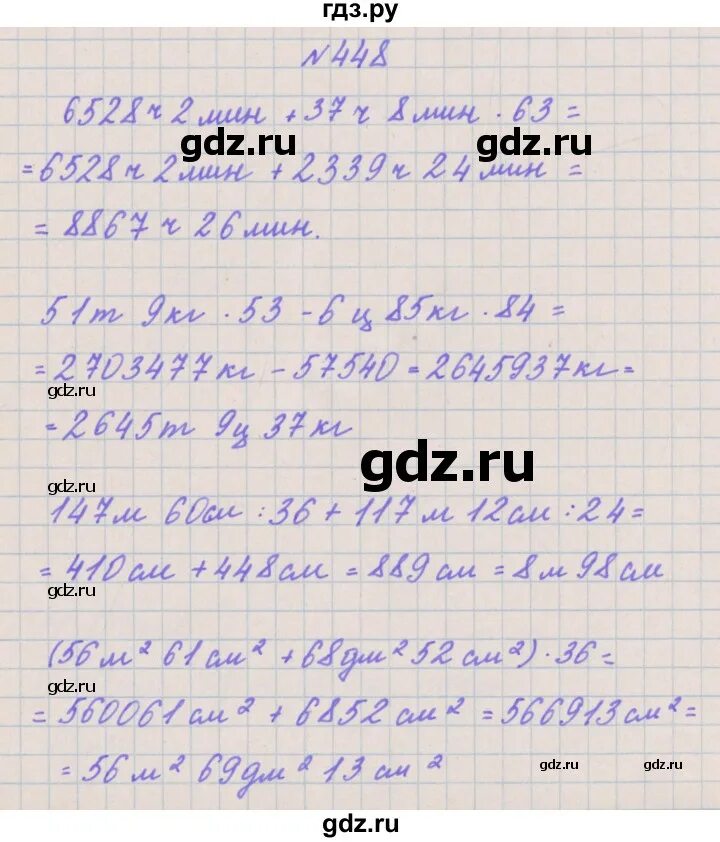 гдз.ру
№448
6528ч 2мин + 37ч 8мин · 63 =
gdz.ru
gdz.ru
= 6528ч 2мин + 2339ч 24мин =
= 8867ч 26мин.
51т 9кг · 53 - 6ц 85кг · 84 =
= 2703477кг - 57540 = 2645937кг =
gdz.ru
= 2645т 9ц 37кг
gdz.ru
gdz.ru
147м 60см : 36 + 117м 12см : 24 =
= 410см + 448см = 889см = 8м 98см
gdz.ru
(56м² 61см² + 68дм² 52см²) · 36 =
gdz.ru
= 560061см² + 6852см² = 566913см² =
= 56м² 69дм² 13см²
gdz.ru
gdz.ru
gdz.ru
gdz.ru